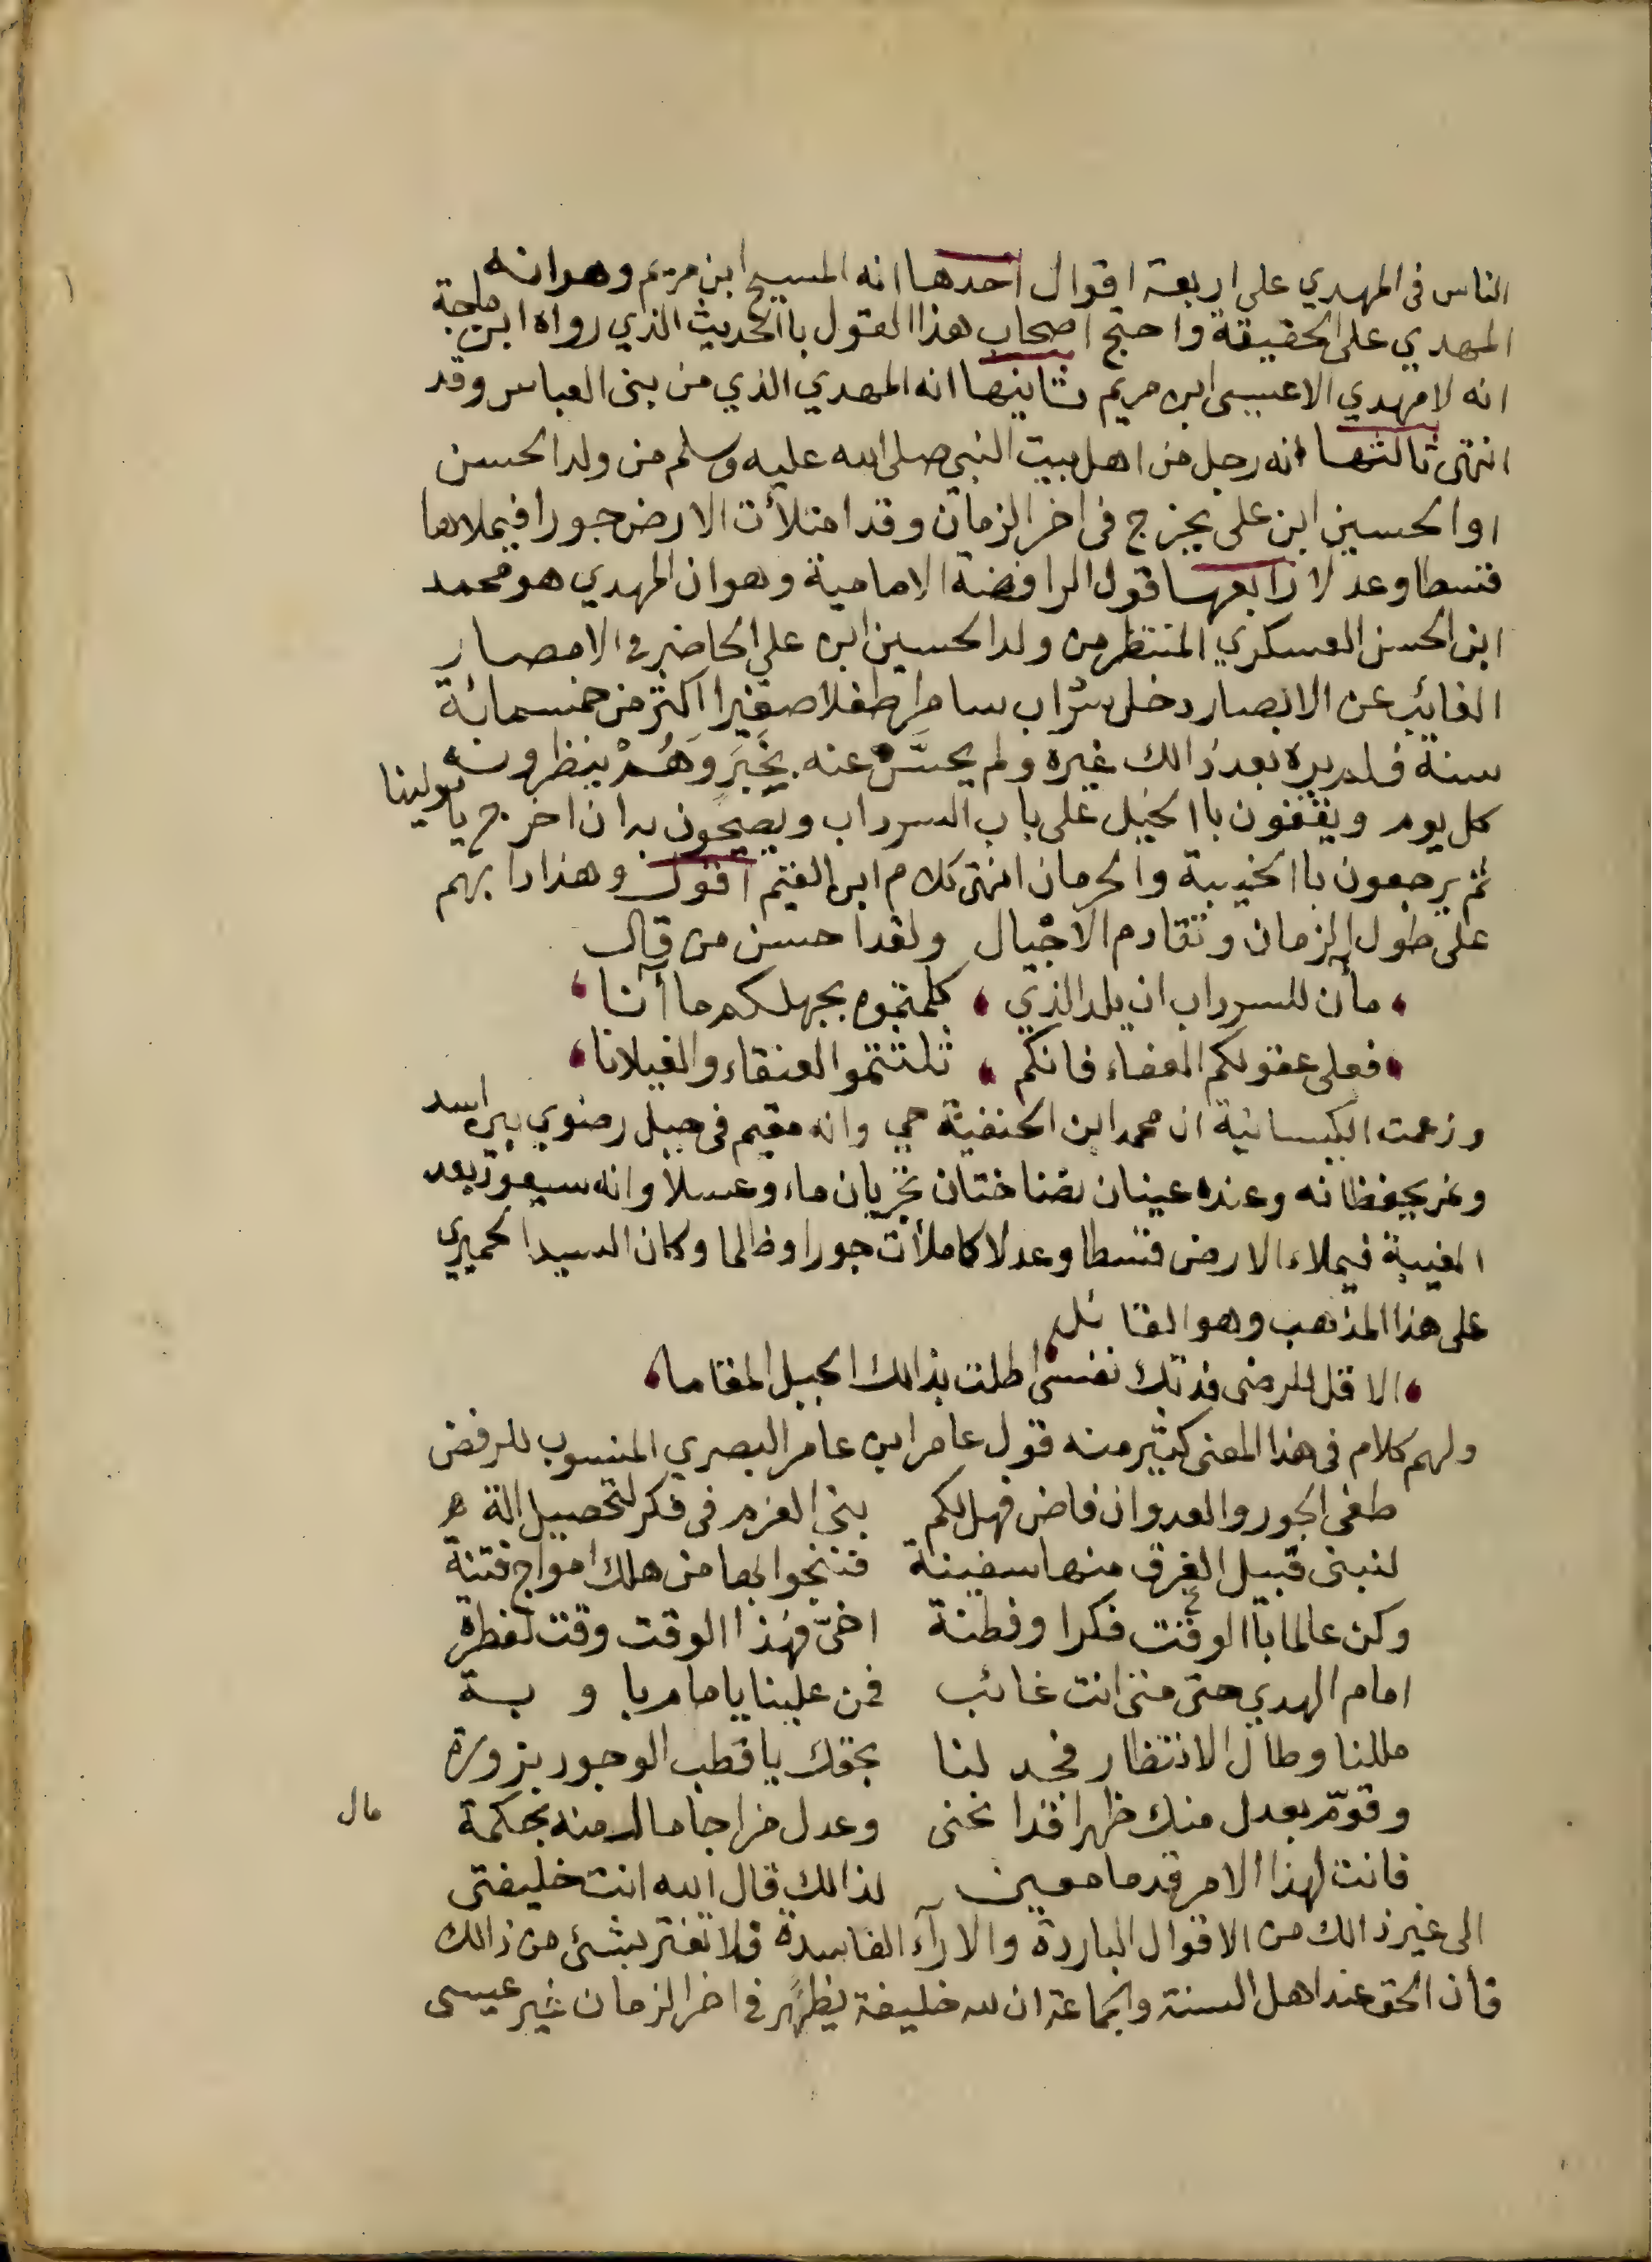 الناس فى المهدي على اربعة اقوال احدها انه المسيح ابن مريم وهوانه
المهدي على الحقيقة واحتج اصحاب هذا القول باالحديث الذي رواه ابن ماجة
انه لا مهدي الا عيسى ابن مريم ثانيها انه المهدي الذي من بنى العباس وقد
انتهى ثالثها انه رجل من اهل بيت النبي صلى الله عليه وسلم من ولد الحسن
اوالحسين ابن على يخرج فى اخر الزمان وقد امتلأت الارض جورا فيملاها
قسطا وعدلا رابعها قول الرافضة الامامية وهوان المهدي هو محمد
ابن الحسن العسكري المنتظر من ولد الحسين ابن علي الحاضر فى الامصار
الغائب عن الابصار دخل سرداب سامرا طفلا صغيرا اكثر من خمسمائة
سنة فلم يره بعد ذالك غيره ولم يحسّ عنه بخبر وَهُمْ ينظرونه
كل يوم ويقفون باالخيل على باب السرداب ويصيحون به ان اخرج يا مولينا
ثم يرجعون باالخيبة والحرمان انتهى كلام ابن القيم اقول وهذا دابهم
على طول الزمان وتقادم الاجيال ولقد احسن من قال
مأن للسرداب ان يلد الذي كلمتموه بجهلكم ما أنا
فعلى عقولكم العفاء فانكم ثلثتموا العنقاء والغيلانا
وزعمت الكيسانية ان محمد ابن الحنفية حي وانه مقيم فى جبل رضوي بين اسد
ونمر يحفظانه وعنده عينان نضاختان تجريان ماء وعسلا وانه سيعود بعد
الغيبة فيملاء الارض قسطا وعدلا كاملأت جورا وظالما وكان السيد الحميري
على هذا المذهب وهو القائل
الا قل للرضى فدتك نفسى اطلت بذالك الجبل المقاما
ولهم كلام فى هذا المعنى كثير منه قول عامر ابن عامر البصري المنسوب للرفض
طغى الجور والعدوان فاض فهل لكم بنى العزم فى فكر لتحصيل الة
لنبنى قبيل الغرق منها سفينة فننجوا بها من هلك امواج فتنة
وكن عالما باالوقت فكرا وفطنة اخىّ فهذا الوقت وقت لفطرة
امام الهدي حتى متى انت غائب فمن علينا يا امام باوبة
مللنا وطال الانتظار فجد لنا بحقك يا قطب الوجود بزورة
وقوّم بعدل منك ظهرا قدانحنى وعدل مزاجا مال منه بحكمة
مال
فانت لهذا الامر قدما معين لذالك قال الله انت خليفتى
الى غير ذالك من الاقوال الباردة والارآء الفاسدة فلا تغتر بشئ من ذالك
فان الحق عند اهل السنة والجماعة ان لله خليفة يظهر فى اخر الزمان غير عيسى